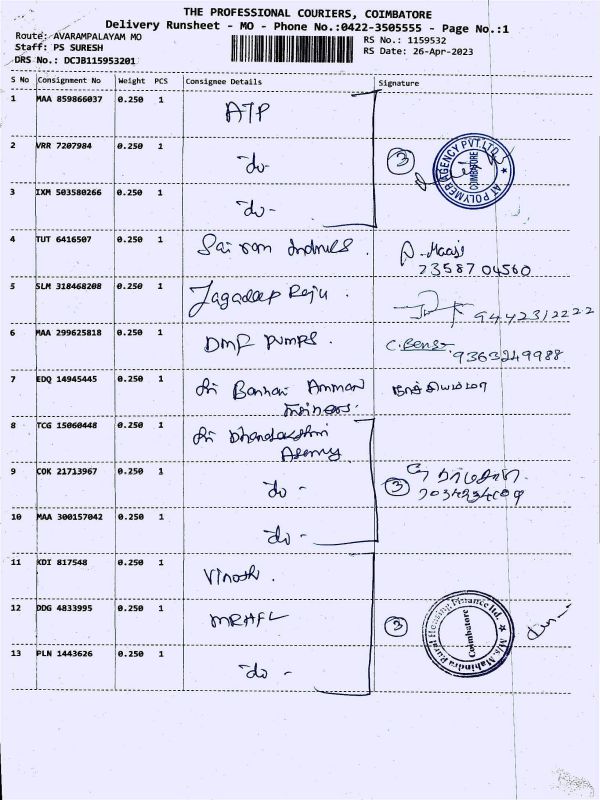 THE PROFESSIONAL COURIERS, COIMBATORE
Delivery Runsheet - MO - Phone No.:0422-3505555 - Page No.:1
Route: AVARAMPALAYAM MO
Staff: PS SURESH
DRS No.: DCJB115953201
RS No.: 1159532
RS Date: 26-Apr-2023
S No Consignment No Weight PCS Consignee Details Signature
1 MAA 859866037 0.250 1 ATP
2 VRR 7207984 0.250 1 -do- 3
AT POLYMER AGENCY PVT.LTD. ★
COIMBATORE
3 IXM 503580266 0.250 1 -do-
4 TUT 6416507 0.250 1 Sai ram
5 SLM 318468208 0.250 1 Jagadeep Raju. 9442312222
6 MAA 299625818 0.250 1 DMF PUMPS. 9363249988
7 EDQ 14945445 0.250 1 Sri Bannari Amman
8 TCG 15060448 0.250 1 Sri Dhanalakshmi
Agency
9 COK 21713967 0.250 1 -do- 3
10 MAA 300157042 0.250 1 -do-
11 KDI 817548 0.250 1 Vinoth.
12 DDG 4833995 0.250 1 MRHFL 3
M/s. Mahindra Rural Housing Finance ltd. ★
Coimbatore
13 PLN 1443626 0.250 1 -do-